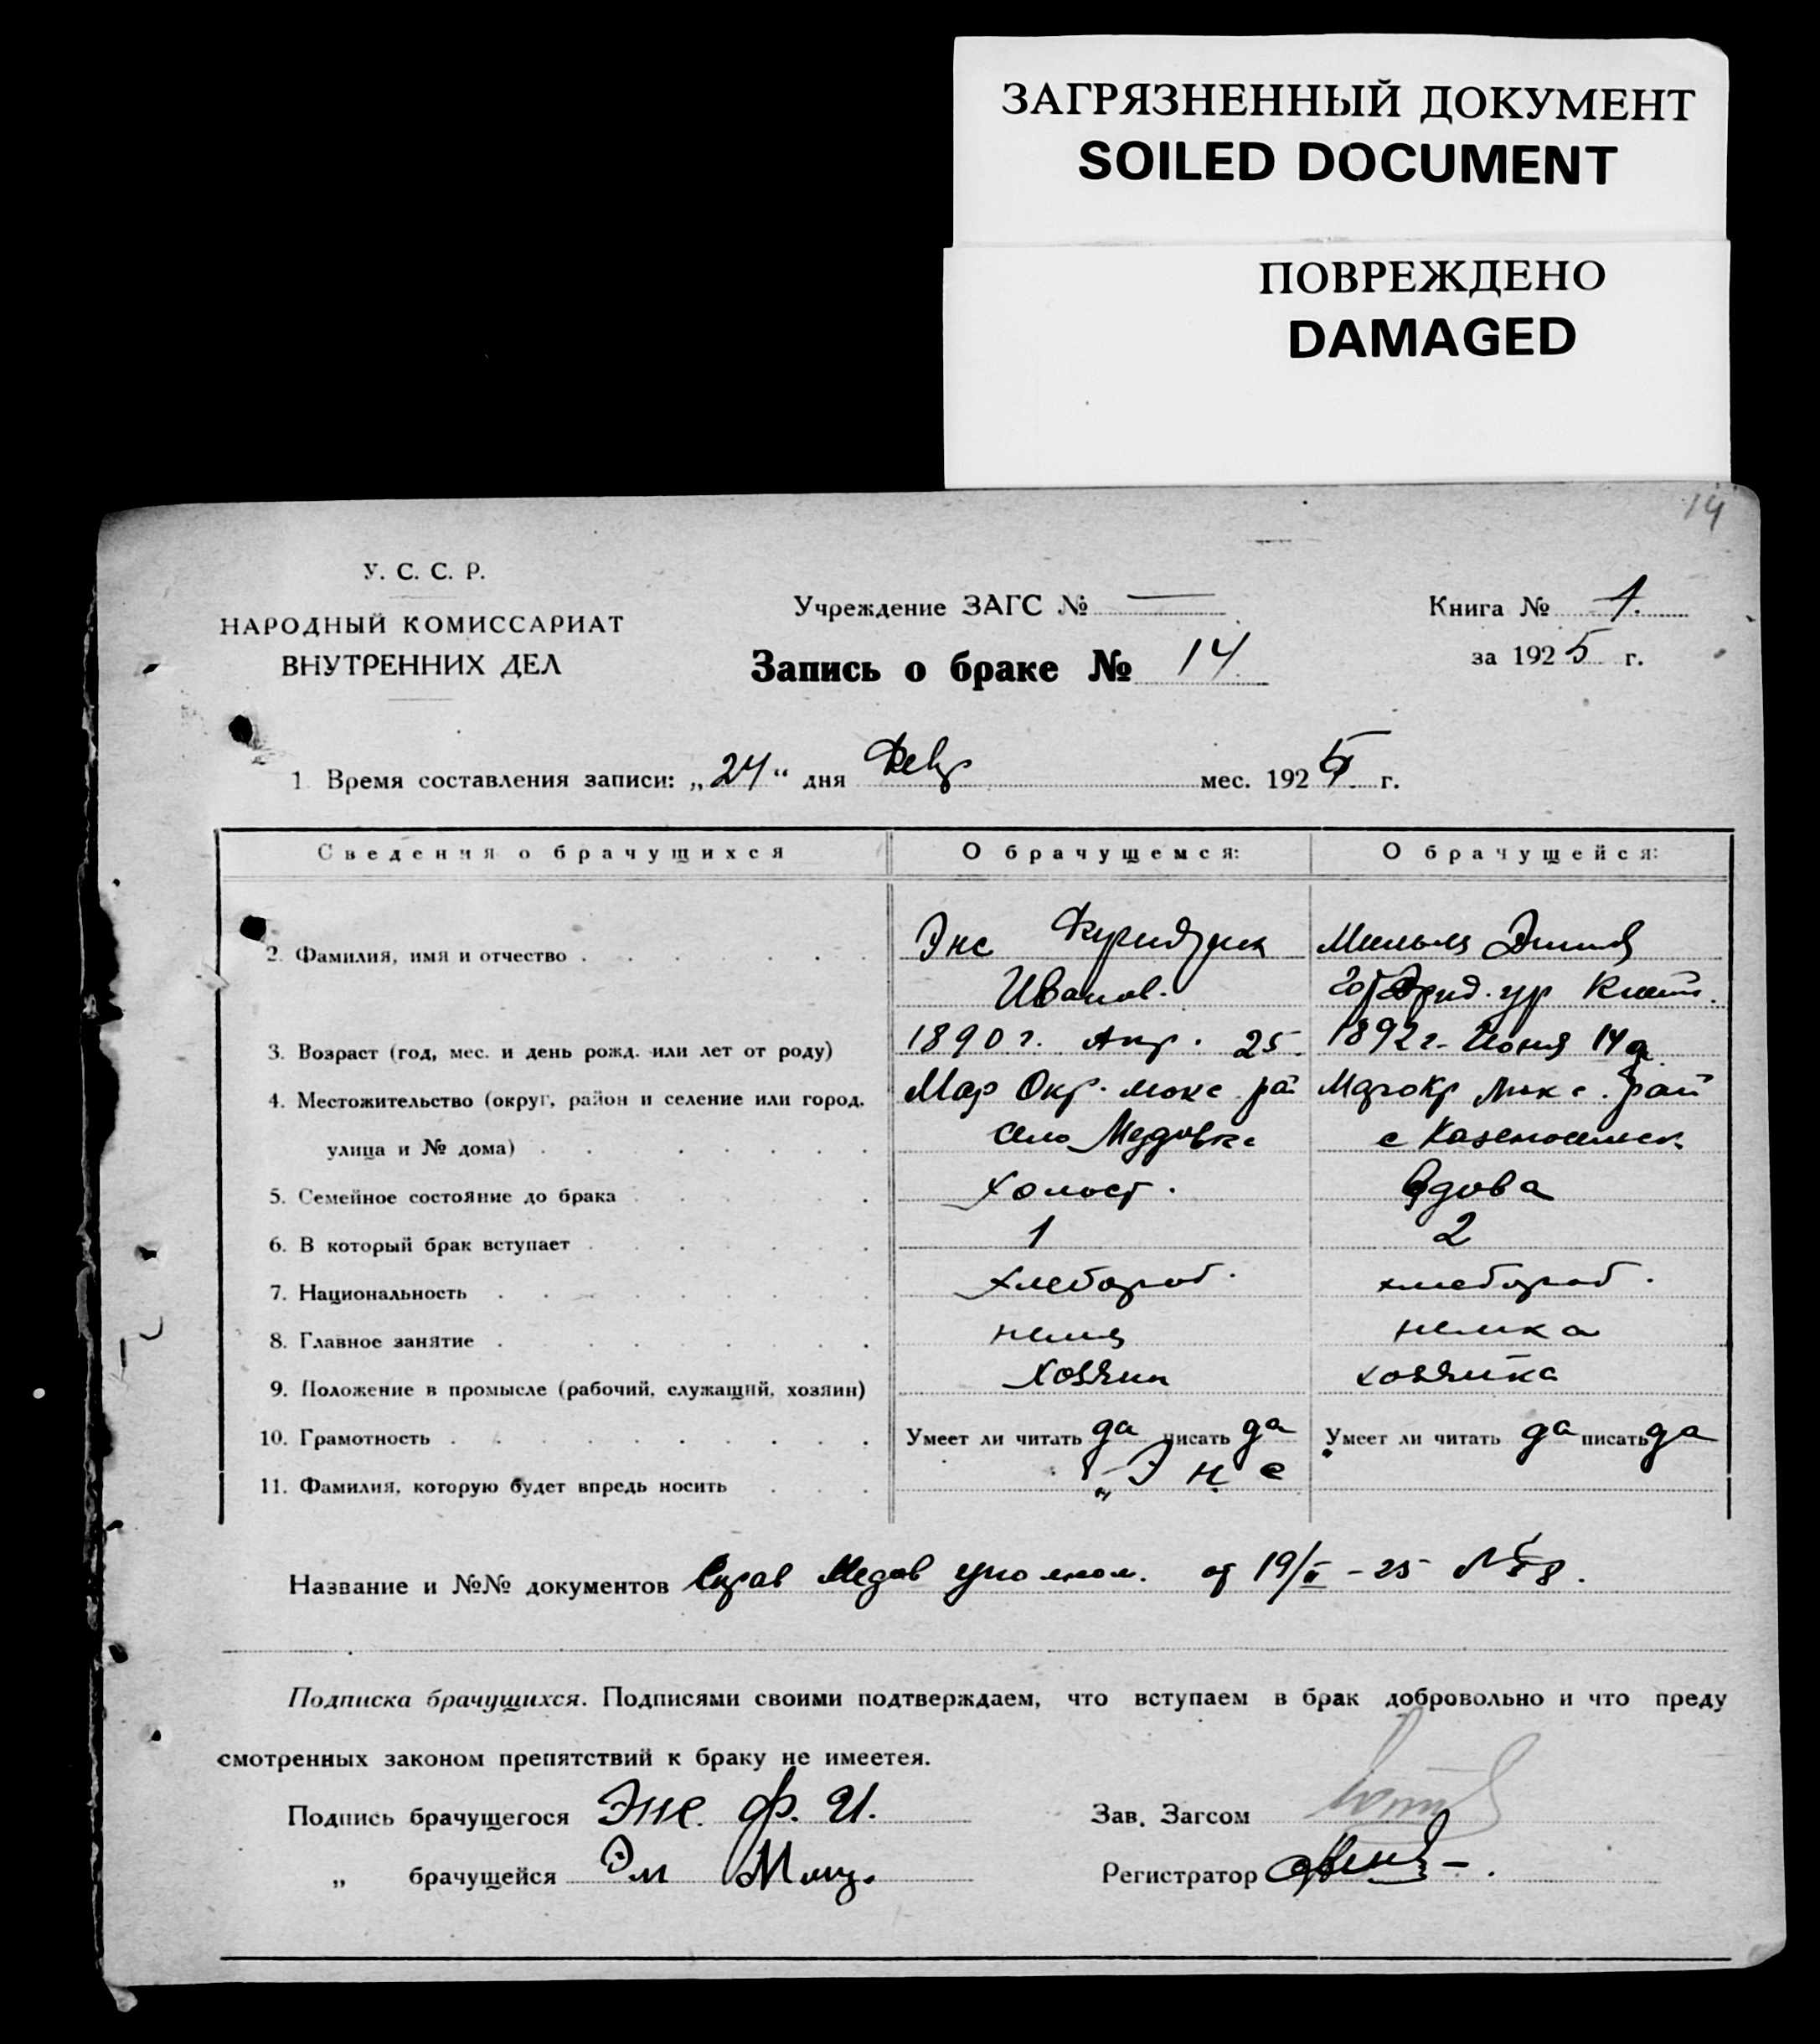 ЗАГРЯЗНЕННЫЙ ДОКУМЕНТ
SOILED DOCUMENT
ПОВРЕЖДЕНО
DAMAGED
14
У. С. С. Р.
НАРОДНЫЙ КОМИССАРИАТ
ВНУТРЕННИХ ДЕЛ
Учреждение ЗАГС № —
Книга № 1.
Запись о браке № 14
за 1925 г.
1. Время составления записи: „24“ дня Февр мес. 1925 г.
Сведения о брачущихся О брачущемся: О брачущейся:
2. Фамилия, имя и отчество Энс Иванов.
3. Возраст (год, мес. и день рожд. или лет от роду) 1890 г. Апр. 25. 1892 г. Июня 14 д.
4. Местожительство (округ, район и селение или город, Мар Окр. люкс. ра Мар окр люкс. рай
улица и № дома) село Медовка с
5. Семейное состояние до брака Холост. Вдова
6. В который брак вступает 1 2
7. Национальность хлебороб. хлебороб.
8. Главное занятие немц немка
9. Положение в промысле (рабочий, служащий, хозяин) хозяин хозяйка
10. Грамотность Умеет ли читать да писать да Умеет ли читать да писать да
11. Фамилия, которую будет впредь носить „Энс
Название и №№ документов Справ Медов уполном. от 19/II – 25 №
Подписка брачущихся. Подписями своими подтверждаем, что вступаем в брак добровольно и что преду
смотренных законом препятствий к браку не имеетея.
Подпись брачущегося Энс. Ф. И.
Зав. Загсом
„ брачущейся Эм
Регистратор